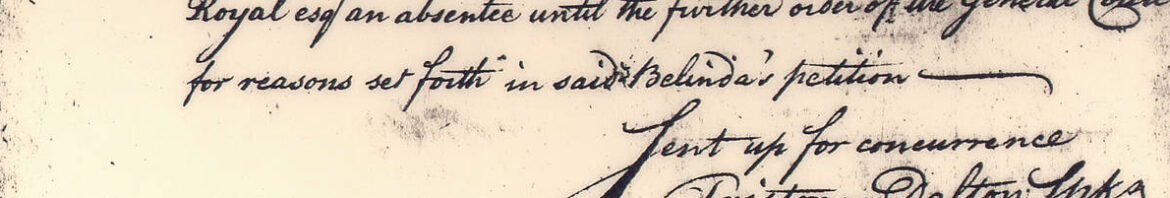 Royal esqr an absentee until the further order of the General Court
for reasons set forth in said Belinda's petition
Sent up for concurrence
Tristram Dalton Spkr